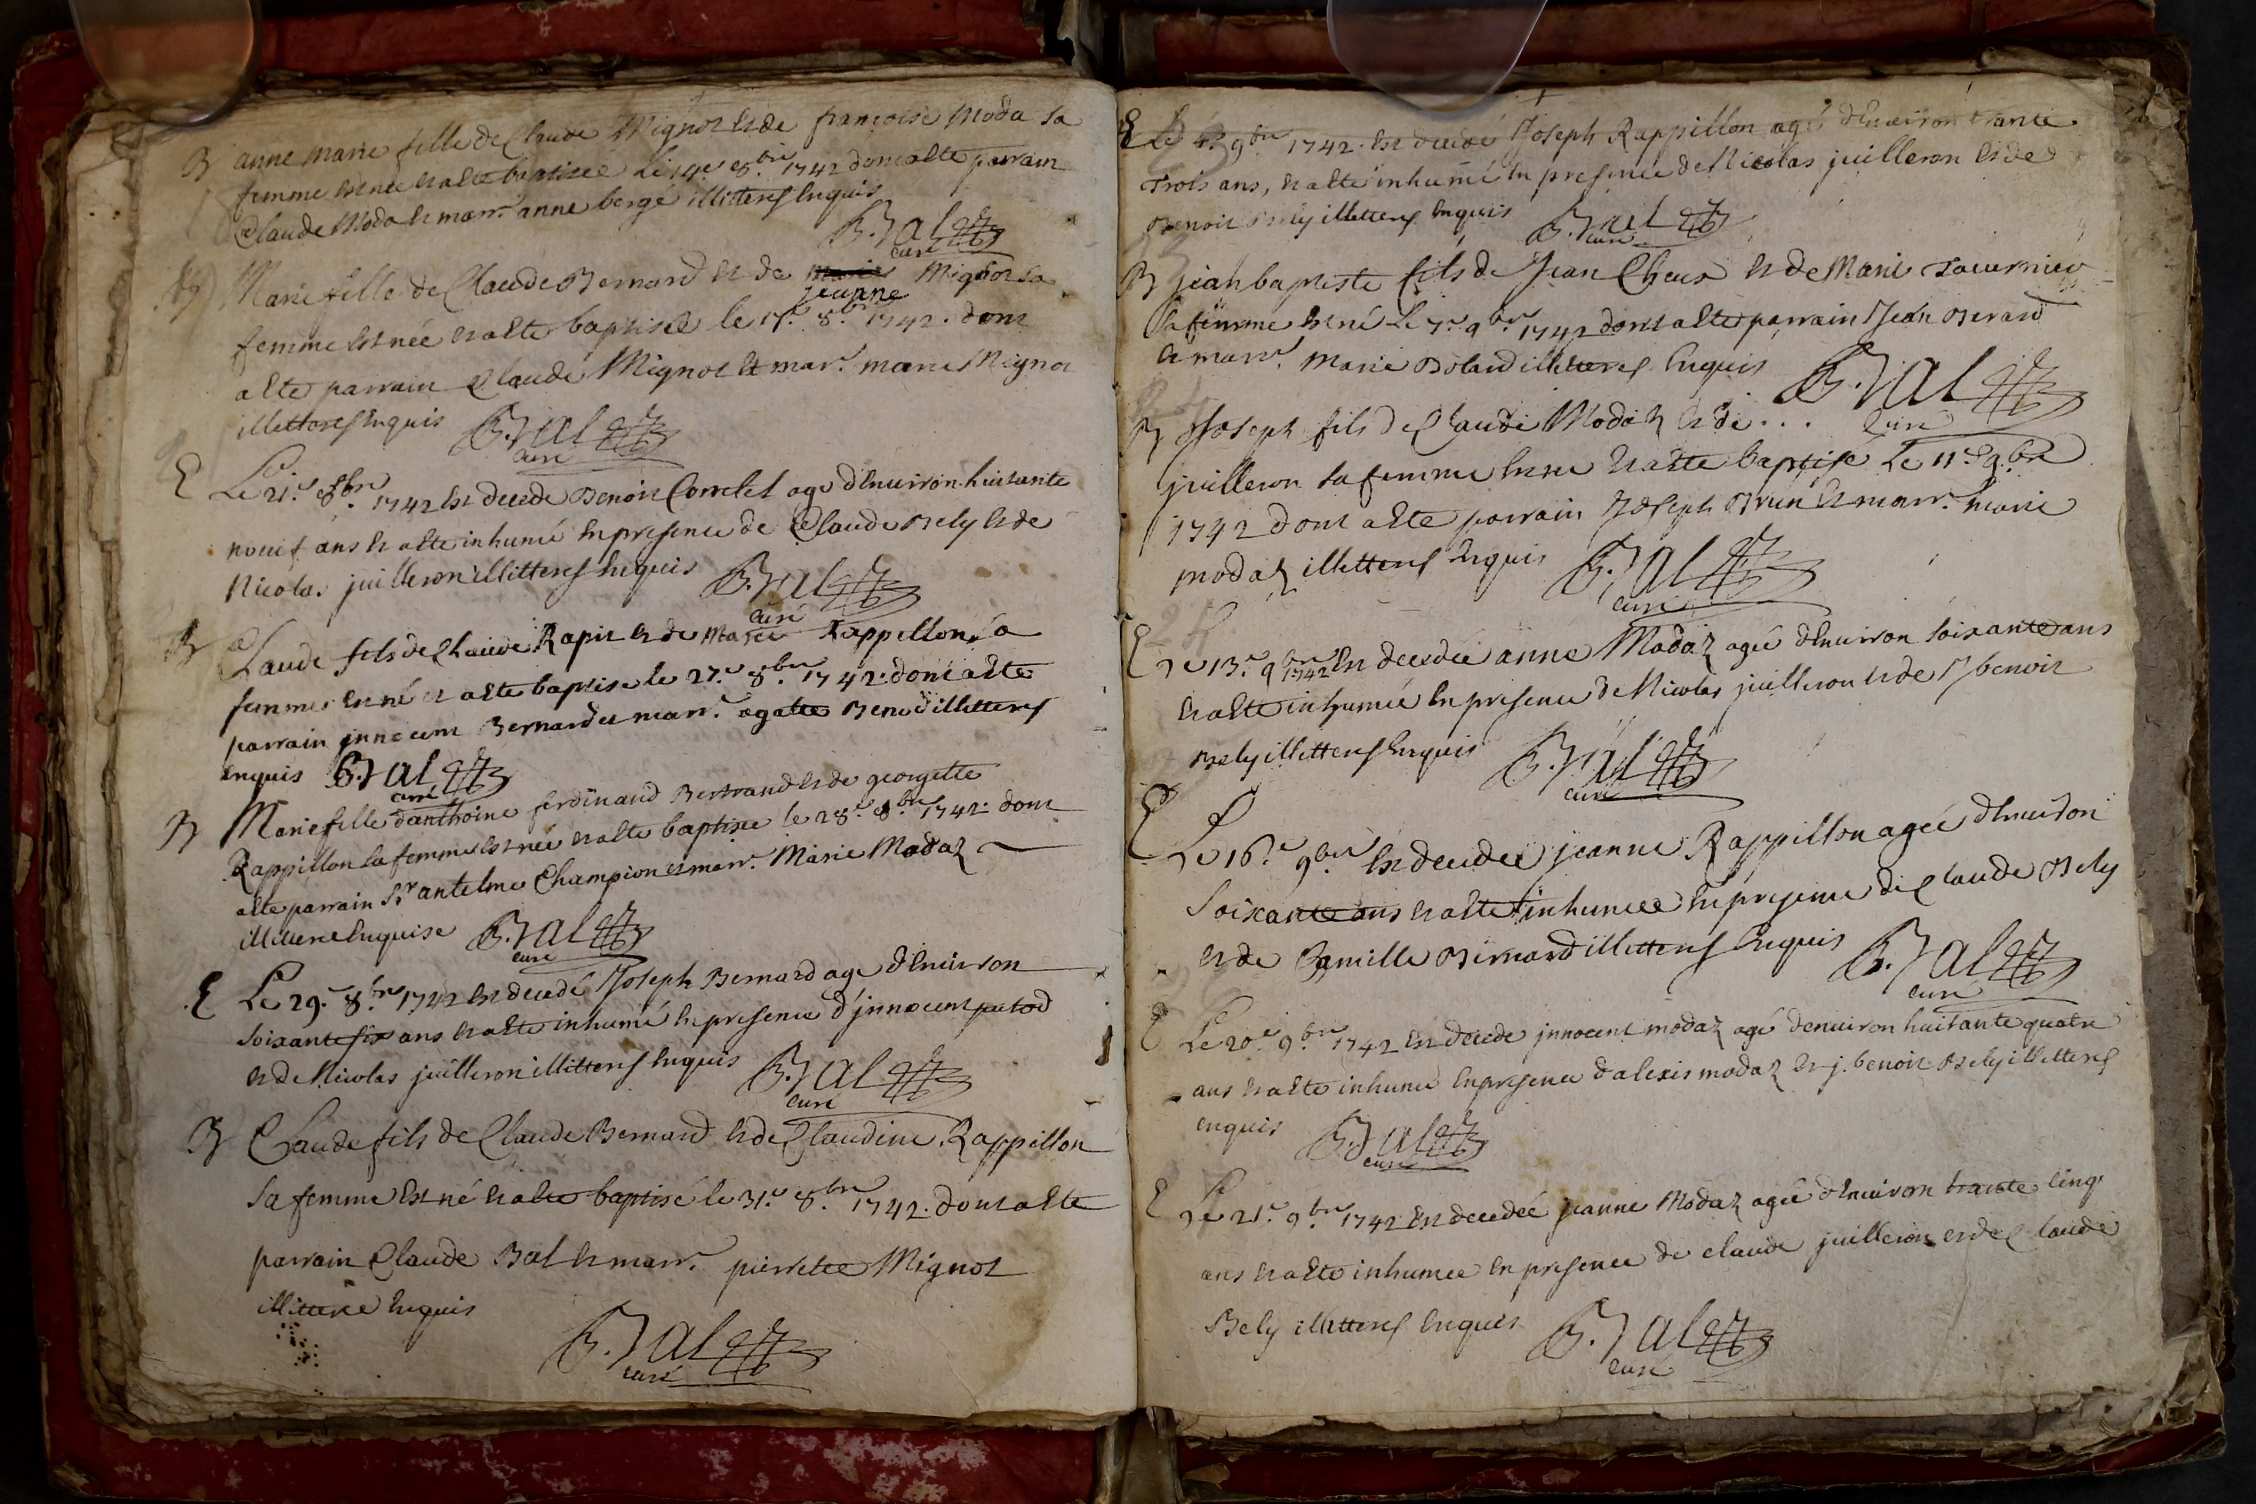 B anne marie fille de Claude Mignot et de françoise Moda sa
femme est née et a été baptisée le 14e 8bre 1742 dont a été parrain
Claude Moda et marr. anne bergé illitterés enquis
B. Bal curé
B Marie fille de Claude Bernard et de jeanne Mignot sa
femme est née et a été baptisée le 17e 8bre 1742. dont
a été parrain Claude Mignot et mar.e marie Mignot
illitterés enquis B. Bal curé
E Le 21e 8bre 1742 est decedé Benoit Cornelet agé d'environ huitante
neuf ans et a été inhumé en presence de Claude Bely et de
Nicolas juilleron illitterés enquis B. Bal curé
B Claude fils de Claude Rapit et de Marie Rappillon sa
femme est né et a été baptisé le 27e 8bre 1742. dont a été
parrain jnnocent Bernard et marr.e agate Benod illitterés
enquis B. Bal curé
B Marie fille d'anthoine ferdinand Bertrand et de georgette
Rappillon sa femme est née et a été baptisée le 28e 8bre 1742. dont
a été parrain Sr. antelme Champion et marr.e Marie Modaz
illitterée enquise B. Bal curé
E Le 29e 8bre 1742 est decedé Joseph Bernard agé d'environ
soixante six ans et a été inhumé en presence d'jnnocent
et de Nicolas juilleron illitterés enquis B. Bal curé
B Claude fils de Claude Bernard et de Claudine Rappillon
sa femme est né et a été baptisé le 31e 8bre 1742. dont a été
parrain Claude Bal et marr.e pierrette Mignot
illitterée enquis
B. Bal curé
E Le 4e 9bre 1742. est decedé Joseph Rappillon agé d'environ trante
trois ans, et a été inhumé en presence de Nicolas juilleron et de
Benoit Bely illitterés enquis B. Bal curé
B jean baptiste fils de Jean Cheux et de Marie
sa femme est né le 7e 9bre 1742 dont a été parrain Jean Berard
et marr.e Marie Bolard illitterés enquis B. Bal
B Joseph fils de Claude Modaz et de . . . curé
juilleron sa femme est né et a été baptisé le 11e 9bre
1742 dont a été parrain Joseph Brun et marr.e Marie
modaz illitterés enquis B. Bal curé
E Le 13e 9bre 1742 est decedée anne Modaz agée d'environ soixante ans
et a été inhumée en presence de Nicolas juilleron et de J benoit
Bely illitterés enquis B. Bal curé
E Le 16e 9bre est decedée jeanne Rappillon agée d'environ
soixante ans et a été inhumée en presence de Claude Bely
et de Camille Bernard illitterés enquis B. Bal curé
E Le 20e 9bre 1742 est decedé jnnocent modaz agé d'environ huitante quatre
ans et a été inhumé en presence d'alexis modaz et j. benoit Bely illitterés
enquis B. Bal curé
E Le 21e 9bre 1742 est decedée jeanne Modaz agée d'environ trante cinq
ans et a été inhumée en presence de claude juilleron et de Claude
Bely illitterés enquis B. Bal curé